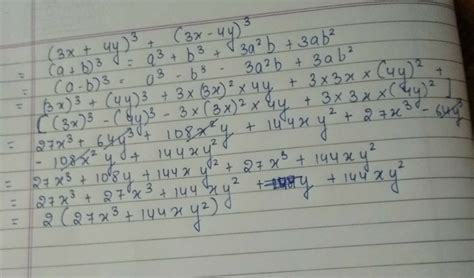 (3x + 4y)³ + (3x - 4y)³
= (a+b)³ = a³ + b³ + 3a²b + 3ab²
= (a-b)³ = a³ - b³ - 3a²b + 3ab²
= (3x)³ + (4y)³ + 3 x (3x)² x 4y + 3 x 3x x (4y)² +
[(3x)³ - (4y)³ - 3 x (3x)² x 4y + 3 x 3x x (4y)²]
= 27x³ + 64y³ + 108x²y + 144xy² + 27x³ - 64y³
- 108x²y + 144xy²
= 27x³ + 108y + 144xy² + 27x³ + 144xy²
= 27x³ + 27x³ + 144xy² + y + 144xy²
= 2(27x³ + 144xy²)